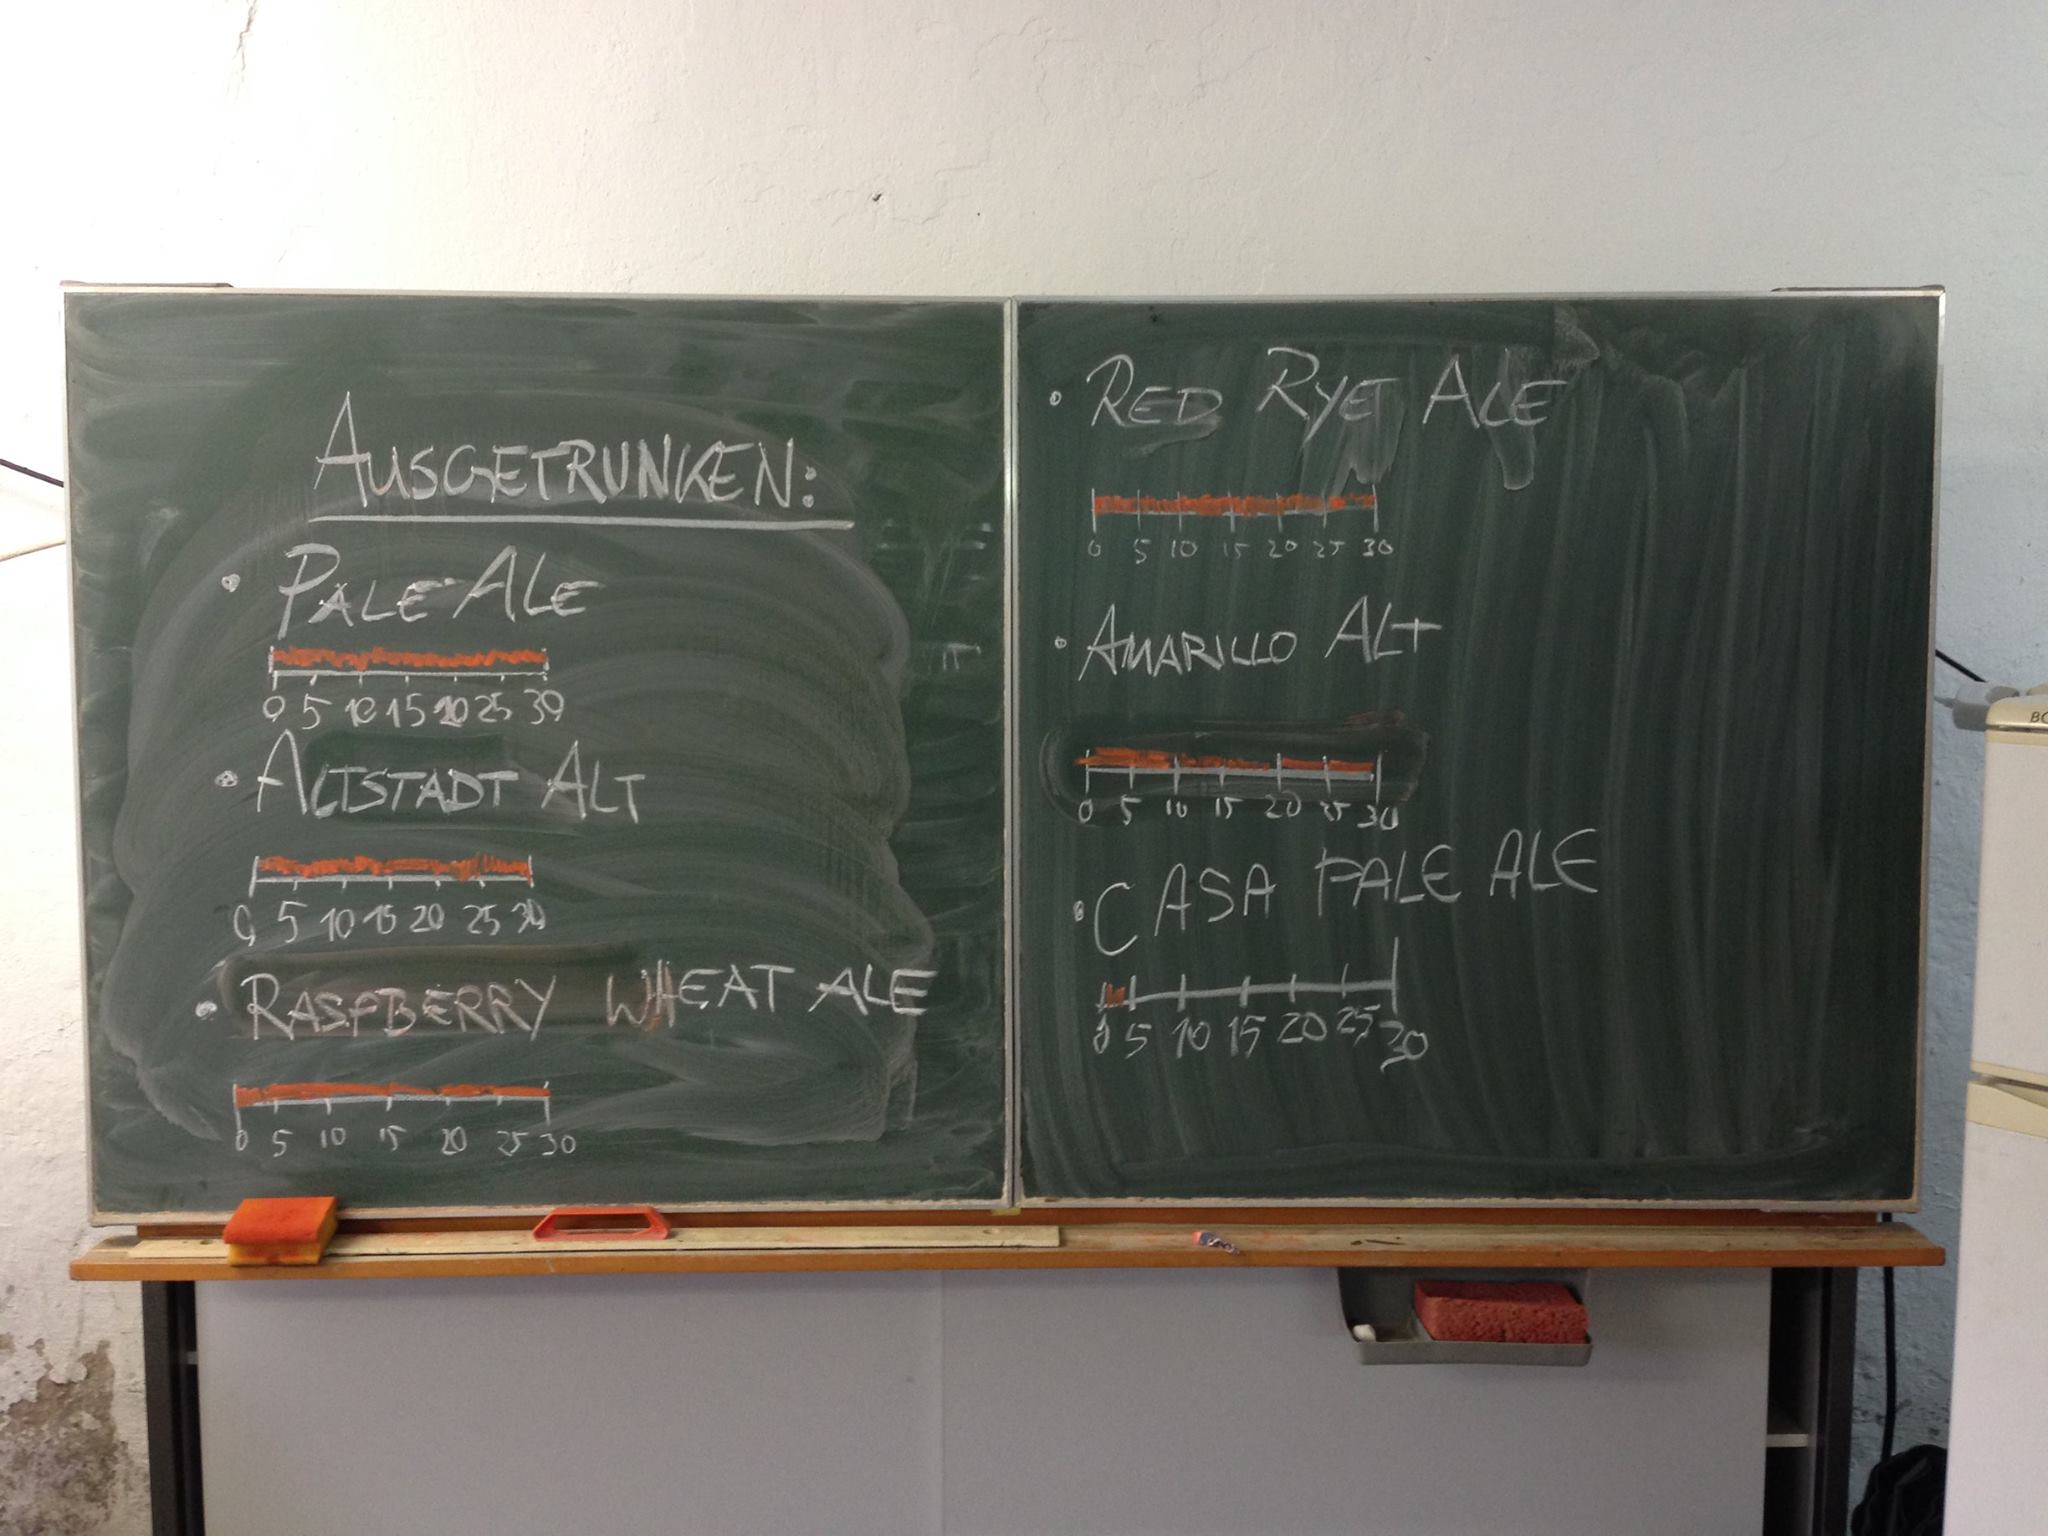 AUSGETRUNKEN:
• PALE ALE
0 5 10 15 20 25 30
• ALTSTADT ALT
0 5 10 15 20 25 30
• RASPBERRY WHEAT ALE
0 5 10 15 20 25 30
• RED RYE ALE
0 5 10 15 20 25 30
• AMARILLO ALT
0 5 10 15 20 25 30
• CASA PALE ALE
0 5 10 15 20 25 30